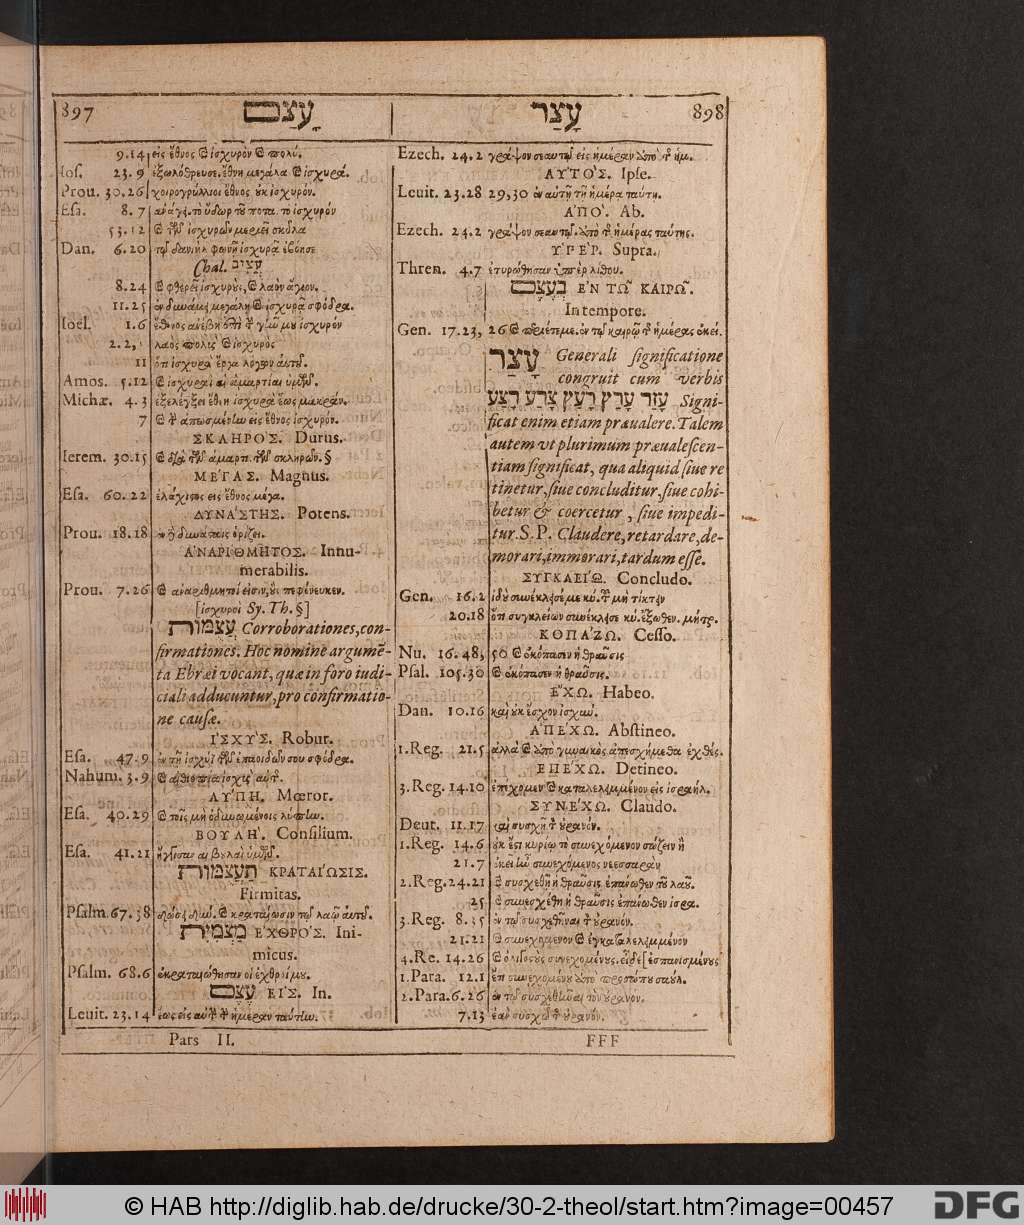 897 עָצַם
9.14 εἰς ἔθνος καὶ ἰσχυρὸν καὶ πολύ.
Ios. 23.9 ἐξωλόθρευσε. ἔθνη μεγάλα καὶ ἰσχυρά.
Prou. 30.26 χοιρογρύλλιοι ἔθνος οὐκ ἰσχυρόν.
Esa. 8.7 ἀνάγει. τὸ ὕδωρ τοῦ ποτα. τὸ ἰσχυρὸν
53.12 καὶ τῶν ἰσχυρῶν μεριεῖ σκῦλα
Dan. 6.20 τῷ δανιὴλ φωνῇ ἰσχυρᾷ ἐβόησε
Chal. עֲצִיב
8.24 καὶ φθερεῖ ἰσχυροὺς, καὶ λαὸν ἅγιον.
11.25 ἐν δυνάμει μεγάλῃ καὶ ἰσχυρᾷ σφόδρα.
Ioel. 1.6 ἔθνος ἀνέβη ἐπὶ τὴν γῆν μου ἰσχυρὸν
2.2, λαὸς πολὺς καὶ ἰσχυρὸς
11 ὅτι ἰσχυρὰ ἔργα λόγων αὐτοῦ.
Amos. 5.12 καὶ ἰσχυραὶ αἱ ἁμαρτίαι ὑμῶν.
Michæ. 4.3 ἐξελέγξει ἔθνη ἰσχυρὰ ἕως μακράν.
7 καὶ τὴν ἀπωσμένην εἰς ἔθνος ἰσχυρόν.
ΣΚΛΗΡΟ'Σ. Durus.
Ierem. 30.15 καὶ διὰ τῶν ἁμαρτ. τῶν σκληρῶν. §
ΜΕ'ΓΑΣ. Magnus.
Esa. 60.22 ἐλάχιστος εἰς ἔθνος μέγα.
ΔΥΝΑ'ΣΤΗΣ. Potens.
Prou. 18.18 ἐν δὲ δυνάσταις ὁρίζει.
ἈΝΑΡΙ'ΘΜΗΤΟΣ. Innu-
merabilis.
Prou. 7.26 καὶ ἀναρίθμητοί εἰσιν, οὓς πεφόνευκεν.
[ἰσχυροὶ Sy. Th. §]
עֲצֻמוֹת Corroborationes, con-
firmationes. Hoc nomine argumē-
ta Ebræi vocant, quæ in foro iudi-
ciali adducuntur, pro confirmatio-
ne causæ.
ἸΣΧΥ'Σ. Robur.
Esa. 47.9 ἐν τῇ ἰσχύϊ τῶν ἐπαοιδῶν σου σφόδρα.
Nahum. 3.9 καὶ αἰθιοπία ἰσχὺς αὐτῆς.
ΛΥ'ΠΗ. Mœror.
Esa. 40.29 καὶ τοῖς μὴ ὀδυνωμένοις λύπην.
ΒΟΥΛΗ'. Consilium.
Esa. 41.21 ἤγγισαν αἱ βουλαὶ ὑμῶν.
תַעֲצֻמוֹת ΚΡΑΤΑΙ'ΩΣΙΣ.
Firmitas.
Psalm. 67.38 δύναμιν καὶ κραταίωσιν τῷ λαῷ αὐτοῦ.
מַצְמִית ἘΧΘΡΟ'Σ. Ini-
micus.
Psalm. 68.6 ἐκραταιώθησαν οἱ ἐχθροί μου.
עֶצֶם ΕΙΣ. In.
Leuit. 23.14 ἕως εἰς αὐτὴν τὴν ἡμέραν ταύτην.
Pars II.
עָצַר 898
Ezech. 24.2 γράψον σεαυτῷ εἰς ἡμέραν ἀπὸ τῆς ἡμ.
ΑΥ'ΤΟ'Σ. Ipse.
Leuit. 23.28 29, 30 ἐν αὐτῇ τῇ ἡμέρα ταύτῃ.
ἈΠΟ'. Ab.
Ezech. 24.2 γράψον σεαυτῷ. ἀπὸ τῆς ἡμέρας ταύτης.
ΥΠΕ'Ρ. Supra.
Thren. 4.7 ἐτυρώθησαν ὑπὲρ λίθου.
בְעֶצֶם ἘΝ ΤΩ͂ ΚΑΙΡΩ͂.
In tempore.
Gen. 17.23, 26 καὶ περιέτεμε. ἐν τῷ καιρῷ τῆς ἡμέρας ἐκεί.
עָצַר Generali significatione
congruit cum verbis
עָזַר עָרַץ רָעַץ צָרַע רָצַע Signi-
ficat enim etiam præualere. Talem
autem vt plurimum præualescen-
tiam significat, qua aliquid siue re
tinetur, siue concluditur, siue cohi-
betur & coercetur, siue impedi-
tur. S.P. Claudere, retardare, de-
morari, immorari, tardum esse.
ΣΥΓΚΛΕΙ'Ω. Concludo.
Gen. 16.2 ἰδοὺ συνέκλεισέ με κύ. τοῦ μὴ τίκτειν
20.18 ὅτι συγκλείων συνέκλεισε κύ. ἔξωθεν. μήτρ.
ΚΟΠΑ'ΖΩ. Cesso.
Nu. 16.48, 50 καὶ ἐκόπασεν ἡ θραῦσις
Psal. 105.30 καὶ ἐκόπασεν ἡ θραῦσις.
ἘΧΩ. Habeo.
Dan. 10.16 καὶ οὐκ ἔσχον ἰσχύν.
ἈΠΕ'ΧΩ. Abstineo.
1.Reg. 21.5 ἀλλὰ καὶ ἀπὸ γυναικὸς ἀπεσχήμεθα ἐχθές.
ἘΠΕ'ΧΩ. Detineo.
3.Reg. 14.10 ἐπεχόμενον καὶ καταλελειμμένον εἰς ἰσραήλ.
ΣΥΝΕ'ΧΩ. Claudo.
Deut. 11.17 καὶ συσχῇ τὸν οὐρανόν.
1.Reg. 14.6 οὐκ ἔστι κυρίῳ τὸ συνεχόμενον σώζειν ἢ
21.7 ἐκεῖ ἦν συνεχόμενος νεεσσαρὰν
2.Reg. 24.21 καὶ συσχεθῇ ἡ θραῦσις ἐπάνωθεν τοῦ λαοῦ.
25 καὶ συνεσχέθη ἡ θραῦσις ἐπάνωθεν ἰσρα.
3.Reg. 8.35 ἐν τῷ συσχεθῆναι τὸν οὐρανόν.
21.21 καὶ συνεχόμενον καὶ ἐγκαταλελειμμένον
4.Re. 14.26 καὶ ὀλιγοστοὺς συνεχομένους. εἶδε [ἐσπανισμένους
1.Para. 12.1 ἔτι συνεχομένου ἀπὸ προσώπου σαούλ.
2.Para. 6.26 ἐν τῷ συσχεθῆναι τὸν οὐρανόν.
7.13 ἐὰν συσχῶ τὸν οὐρανόν.
FFF
© HAB http://diglib.hab.de/drucke/30-2-theol/start.htm?image=00457
DFG